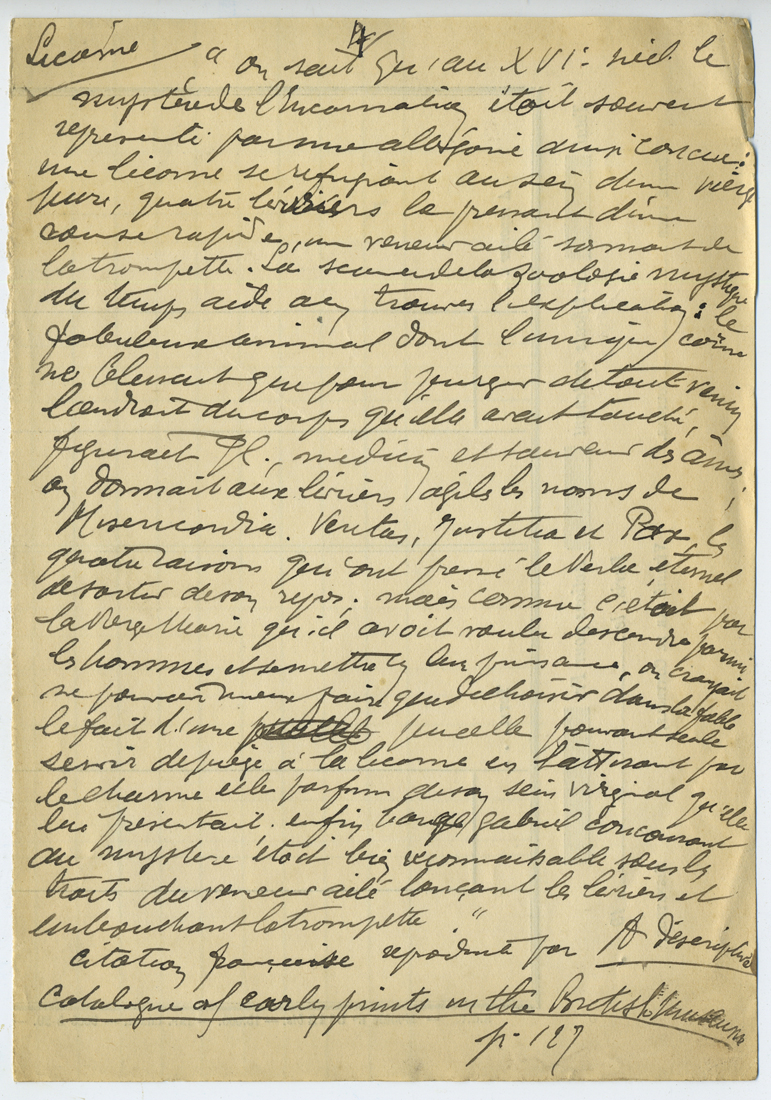 Licorne
" on sait qu'au XVI: siècle le
mystère de l'Incarnation étoit souvent
représenté par une allégorie ainsi conçue:
une licorne se refugiant au sein d'une vierge
pure, quatre lévriers la pressant d'une
course rapide, un veneur ailé sonnant de
la trompette. La science de la zoologie mystique
du temps aide a en trouver l'explication: le
fabuleux animal dont l'unique corne
ne blessait que pour purger de tout venin
l'endroit du corps qu'elle avait touché,
figurait J.C., medecin et sauveur des âmes;
on donnait aux lévriers agiles les noms de
Misericordia, Veritas, Justitia et Pax, les
quatre raisons qui ont pressé le Verbe éternel
de sortir de son repos. mais comme c'étoit par
la Vierge Marie qu'il avoit voulu descendre parmi
les hommes et se mettre en leur puissance, on croyait
ne pouvoir mieux faire que de choisir dans la fable
le fait d'une pucelle pouvant seule
servir de piège à la licorne en l'attirant par
le charme et le parfum de son sein virginal qu'elle
lui présentait. enfin l'ange Gabriel concourant
au mystère étoit bien reconnaissable sous les
traits du veneur ailé lançant les lévriers et
embouchant la trompette "
citation française reproduite par A descriptive
catalogue of early prints in the British Museum
p. 127